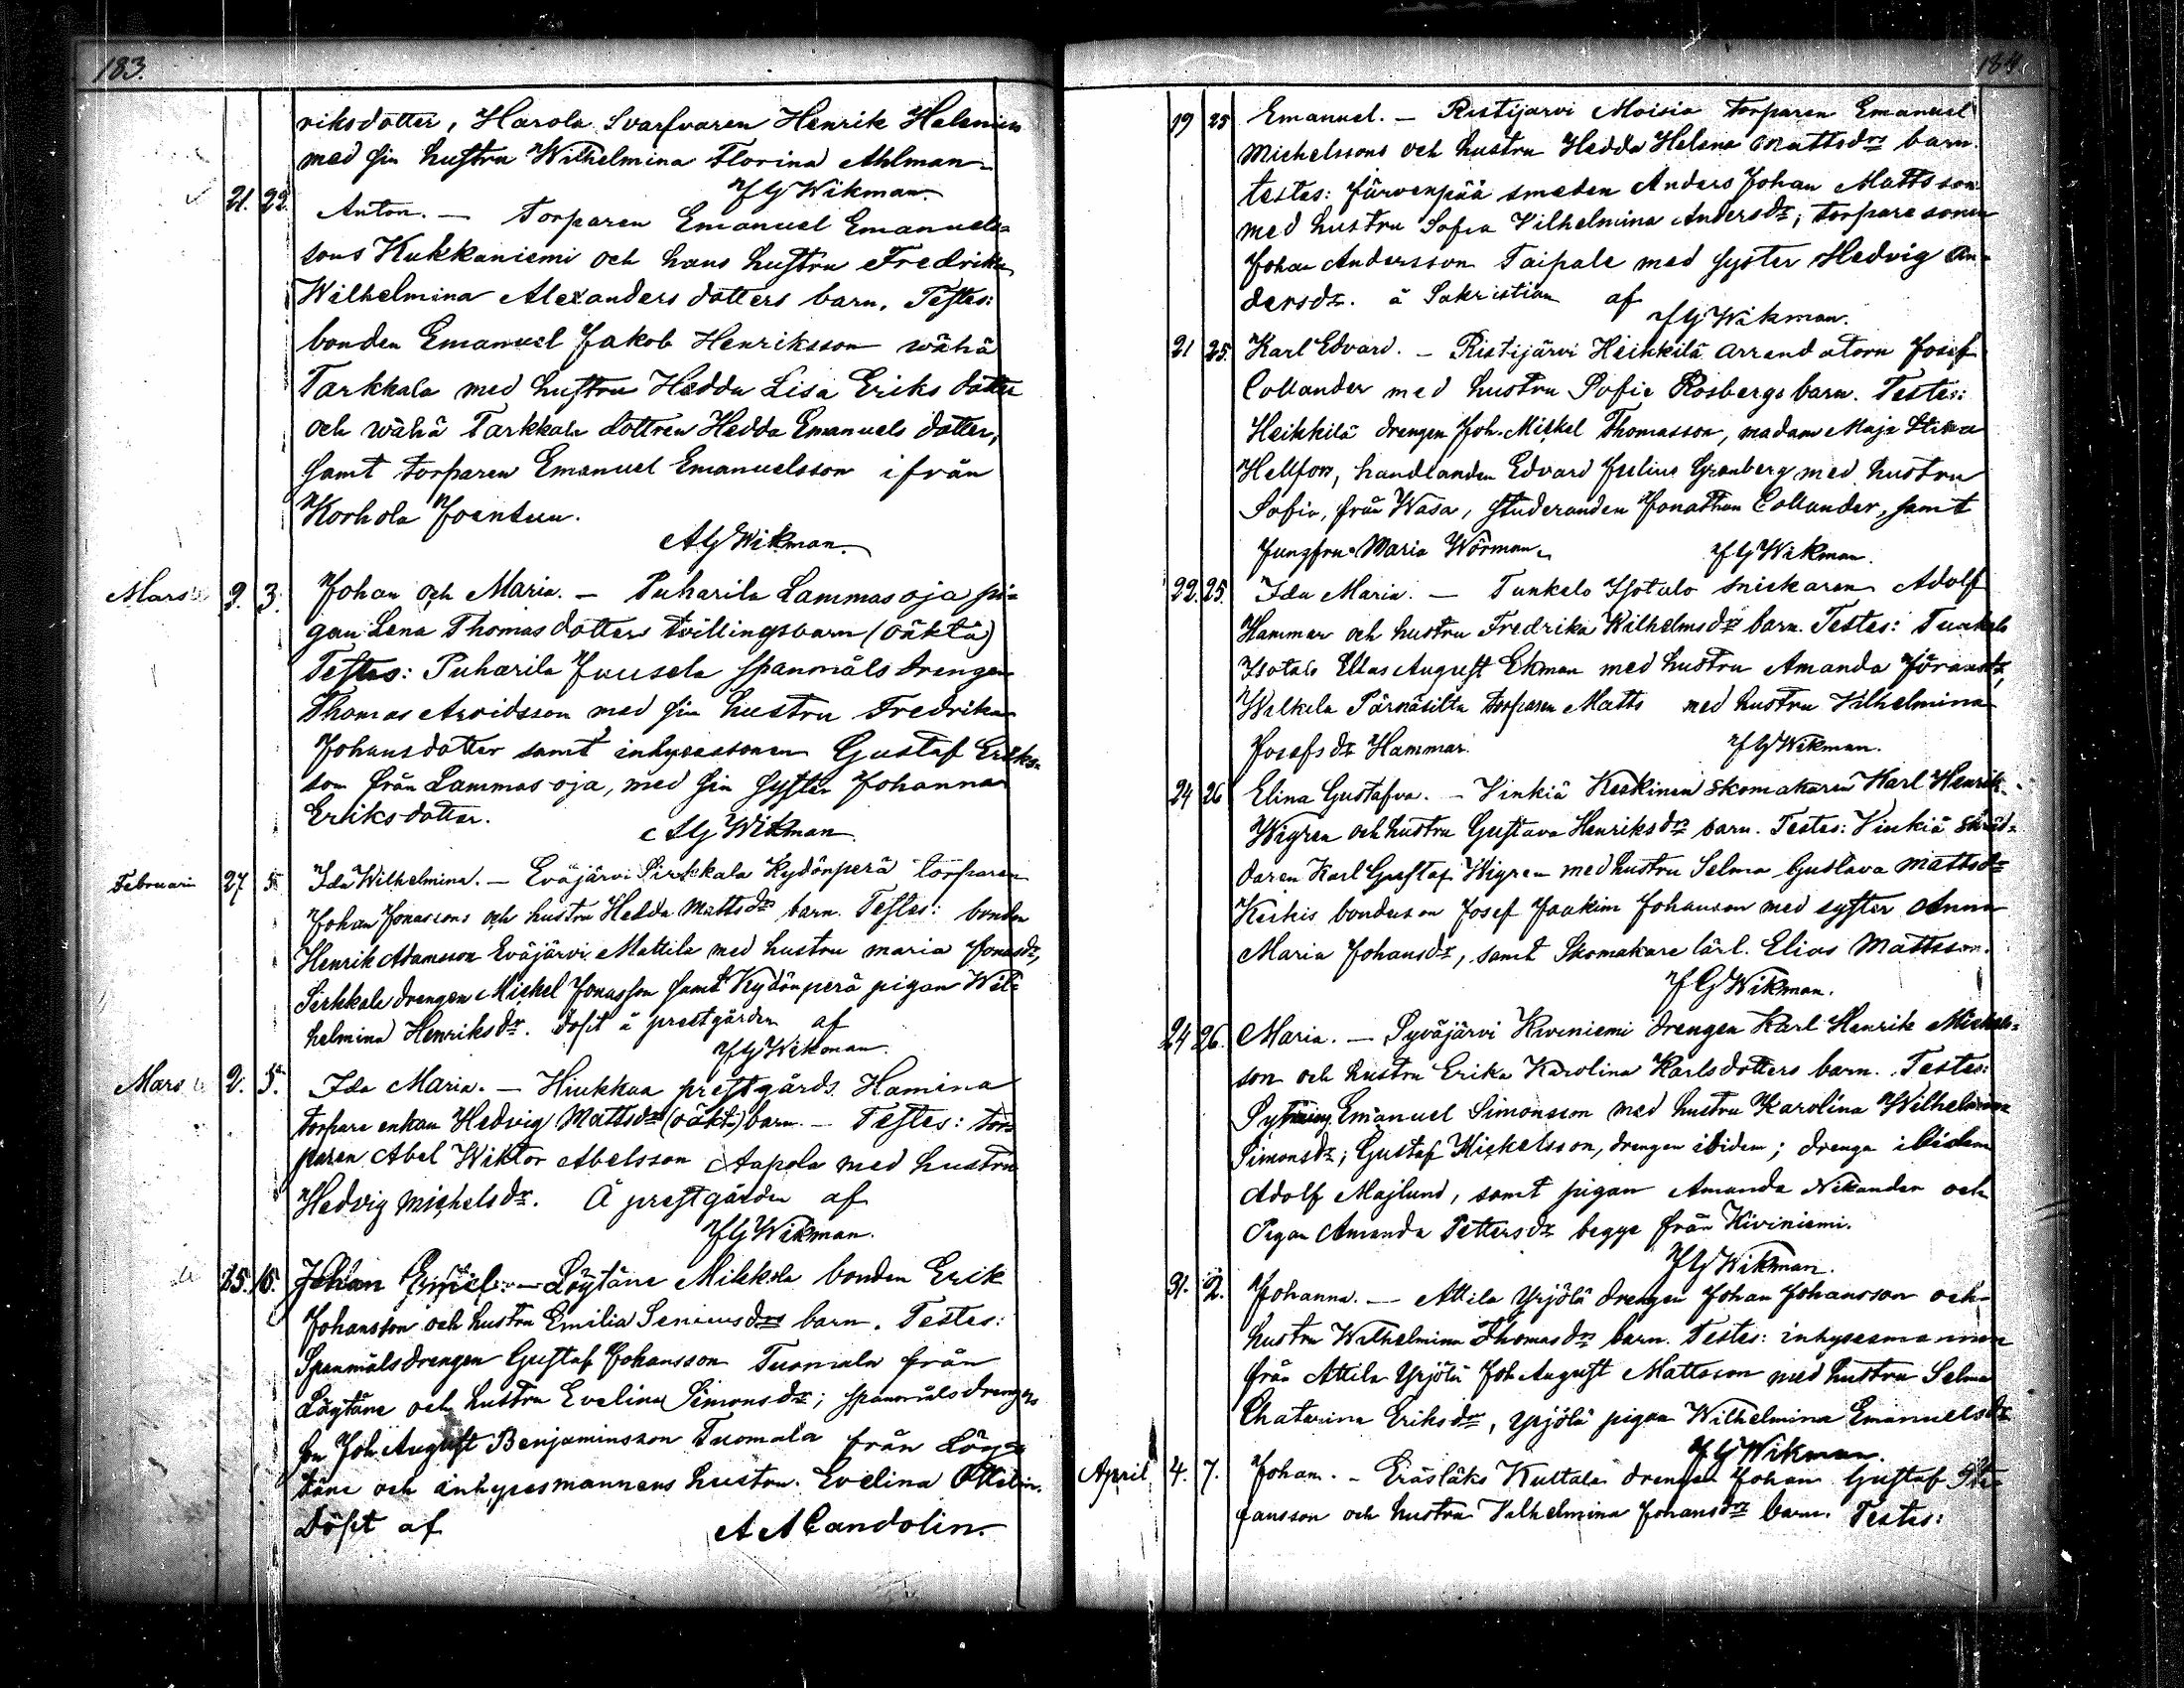 183.
riksdotter, Harola Svarfvaren Henrik Helenius
med sin hustru Wilhelmina Florina Ahlman
JGWikman.
21. 22. Anton. — Torparen Emanuel Emanuels=
sons Kukkaniemi och hans hustru Fredrika
Wilhelmina Alexanders dotters barn. Testes:
bonden Emanuel Jakob Henriksson wähä
Tarkkala med hustru Hedda Lisa Eriks dotter
och wähä Tarkkala dottren Hedda Emanuels dotter,
samt torparen Emanuel Emanuelsson ifrån
Korhola Joensuu.
AGWikman.
Mars 2. 3. Johan och Maria. — Puharila Lammasoja pi=
gan Lena Thomas dotters tvillingsbarn (oäkta)
Testes: Puharila Juusela spanmåls drengen
Thomas Arvidsson med sin hustru Fredrika
Johansdotter samt inhysessonen Gustaf Eriks=
son från Lammasoja, med sin syster Johanna
Eriksdotter.
AGWikman
Februari 27 5 Ida Wilhelmina. — Eväjärvi Sirkkala Kydönperä torparen
Johan Jonassons och hustru Hedda Mattsdrs barn. Testes: bonden
Henrik Adamsson Eväjärvi Mattila med hustru maria Jonasdr,
Sirkkala drengen Mickel Jonasson samt Kydönperä pigan Wil=
helmina Henriksdr. Döpt å prestgården af
JGWikman.
Mars 2. 5. Ida Maria. — Hiukkaa prestgårds Hamina
torpare enkan Hedvig Mattsdrs (oäkt) barn. — Testes: tor=
paren Abel Wiktor Abelsson Aapola med hustru
Hedvig Michelsdr. Å prestgården af
JGWikman.
25. 15. Johan Emil. — Löytäne Mikkola bonden Erik
Johansson och hustru Emilia Seniusdrs barn. Testes:
Spanmålsdrengen Gustaf Johansson Tuomala från
Löytäne och hustru Evelina Simonsdr; spanmålsdrengs
son Joh. August Benjaminsson Tuomala från Löy=
täne och inhysesmannens hustru Evelina
Döpt af AACandolin.
184.
19 25 Emanuel. — Ristijärvi Moisio torparen Emanuel
Michelssons och hustru Hedda Helena Mattsdrs barn.
testes: Järvenpää smeden Anders Johan Mattsson
med hustru Sofia Vilhelmina Andersdr; torparesonen
Johan Andersson Taipale med syster Hedvig An=
dersdr. å Sakristian af
JGWikman.
21 25. Karl Edvard. — Ristijärvi Heikkilä arrendatorn Josef
Collander med hustru Sofia Rosbergs barn. Testes:
Heikkilä drengen Joh. Mickel Thomasson, madam Maja Stina
Hellfors, handlanden Edvard Julius Grönberg med hustru
Sofia, från Wasa, Studeranden Jonathan Collander, samt
Jungfru Maria Wörman. JGWikman.
22. 25. Ida Maria. — Tunkelo Isotalo snickaren Adolf
Hammar och hustru Fredrika Wilhelmsdrs barn. Testes: Tunkelo
Isotalo Elias August Ekman med hustru Amanda Göransdr,
Wilkela Pärnäsilta torparen Matts med hustru Vilhelmina
Josefsdr Hammar. JGWikman.
24 26 Elina Gustafva. — Vinkiä Keskinen skomakaren Karl Henrik
Wigren och hustru Gustava Henriksdrs barn. Testes: Vinkiä Skräd=
daren Karl Gustaf Wigren med hustru Selma Gustava Mattsdr
Keikis bondeson Josef Joakim Johanson med syster Anna
Maria Johansdr, samt Skomakare lärl. Elias Mattsson.
JGWikman.
24 26. Maria. — Syväjärvi Kiviniemi drengen Karl Henrik Mickels=
son och hustru Erika Karolina Karlsdotters barn. Testes:
Sytning Emanuel Simonsson med hustru Karolina Wilhelmina
Simonsdr; Gustaf Mickelsson, drengen ibidem; drenge ibidem
Adolf Majlund, samt pigan Amanda Nikander och
Pigan Amanda Pettersdr begge från Kiviniemi.
JGWikman.
31. 2. Johanna. — Attila Yrjölä drengen Johan Johansson och
hustru Wilhelmina Thomasdrs barn. Testes: inhysesmannen
från Attila Yrjölä Joh. August Mattsson med hustru Selma
Chatarina Eriksdr, Yrjölä pigan Wilhelmina Emanuelsdr
JGWikman.
April 4. 7. Johan. — Eräslaks Kuttala drengen Johan Gustaf Ste=
fansson och hustru Vilhelmina Johansdrs barn. Testes: